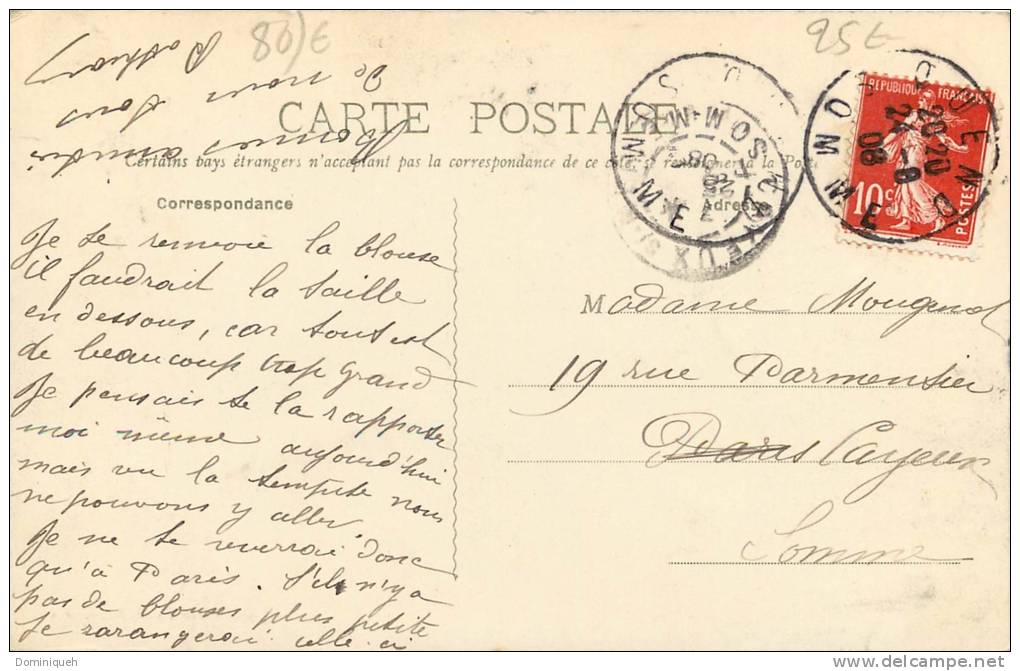 80)€
95€
CARTE POSTALE
Certains pays étrangers n'acceptant pas la correspondance de ce côté, se renseigner à la Poste
Correspondance
Je te renvoie la blouse
il faudrait la taille
en dessous, car tout est
de beaucoup trop grand
Je pensais te la rapporter
moi même aujourd'hui
mais vu la tempête nous
ne pouvons y aller
Je ne te verrai donc
qu'à Paris. S'il n'y a
pas de blouses plus petite
Je rarangerai celle ci
Bonnes amitiés
de nous tous
Adresse
Madame
19 rue Parmentier
Paris Cayeux
Somme
REPUBLIQUE FRANÇAISE
10c
POSTES
20 20
24 -8
08
SOMME
SOMME
Dominiqueh
www.delcampe.net